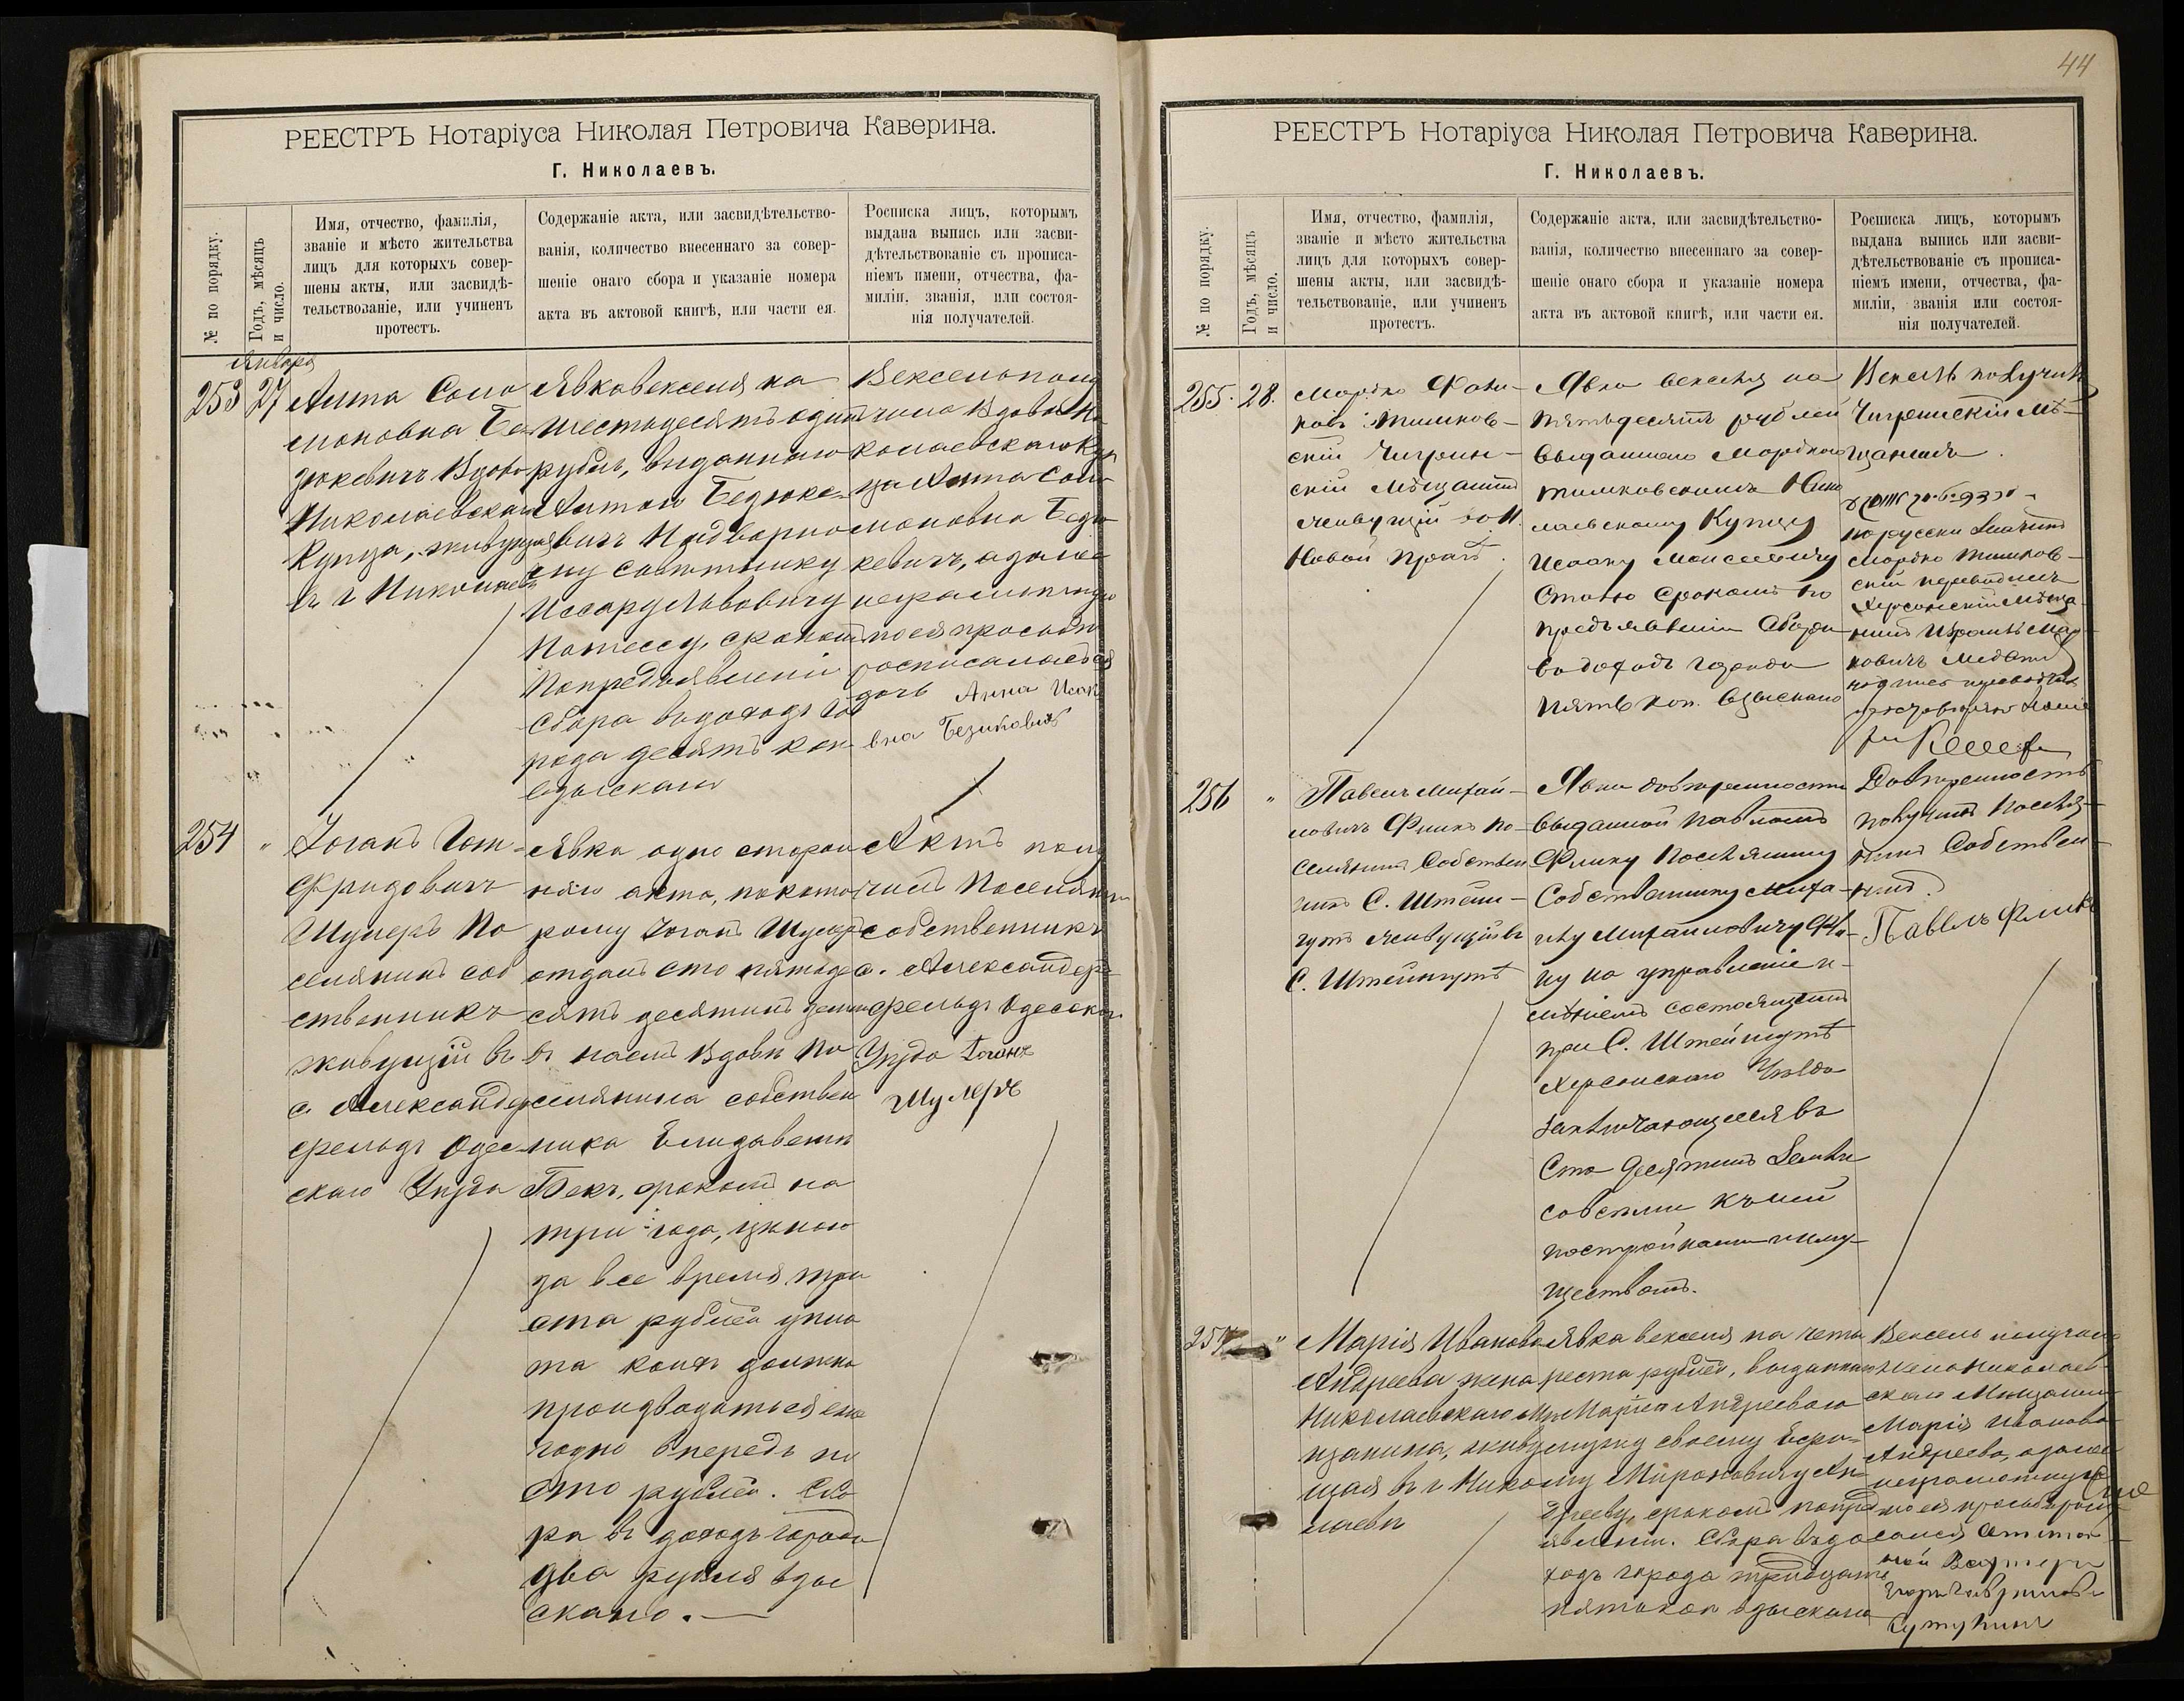 РЕЕСТРЪ Нотаріуса Николая Петровича Каверина.
Г. Николаевъ.
№ по порядку.
Годъ, мѣсяцъ
и число.
Имя, отчество, фамилія,
званіе и мѣсто жительства
лицъ для которыхъ совер-
шены акты, или засвидѣ-
тельствованіе, или учиненъ
протестъ.
Содержаніе акта, или засвидѣтельство-
ванія, количество внесеннаго за совер-
шеніе онаго сбора и указаніе номера
акта въ актовой книгѣ, или части ея.
Росписка лицъ, которымъ
выдана выпись или засви-
дѣтельствованіе съ прописа-
ніемъ имени, отчества, фа-
миліи, званія, или состоя-
нія получателей.
Января
253
27
Анна Соло
моновна Бе
зюкевичъ Вдова
Николаевскаго
Купца, живущая
въ г Николаевѣ
Явка векселя на
шестьдесятъ одинъ
рубль, выданнаго
Надворно
му совѣтнику
Львовичу
срокомъ
По предъявленіи
Сбора въ доходъ го
рода десять коп
взыскано
Вексель полу
чила Вдова Ни
колаевскаго Куп
ца Анна Соло
моновна
кевичъ, а за нее
неграмотную
по ея просьбѣ
росписалась ея
дочь Анна Исак
вна
254
"
Іоганъ Гот-
фридовичъ
Шулеръ По
селянинъ соб
ственникъ
живущій въ
с. Александер
фельдъ Одес
скаго Уѣзда
Явка одно сторон
няго акта, по кото
рому Іоганъ Шулеръ
отдалъ сто пятьде
сятъ десятинъ земли
въ наемъ Вдовѣ По
селянина собствен
ника Елизаветѣ
Бекъ, срокомъ на
три года, цѣною
за все время три
ста рублей упла
та коихъ должна
производиться еже
годно впередъ по
сто рублей. Сбо
ра въ доходъ города
два рубля взы
скано.
Актъ полу
чилъ Поселянинъ
собственникъ
с. Александер
фельдъ Одесскаго
Уѣзда Іоганъ
Шулеръ
44
РЕЕСТРЪ Нотаріуса Николая Петровича Каверина.
Г. Николаевъ.
№ по порядку.
Годъ, мѣсяцъ
и число.
Имя, отчество, фамилія,
званіе и мѣсто жительства
лицъ для которыхъ совер-
шены акты, или засвидѣ-
тельствованіе, или учиненъ
протестъ.
Содержаніе акта, или засвидѣтельство-
ванія, количество внесеннаго за совер-
шеніе онаго сбора и указаніе номера
акта въ актовой книгѣ, или части ея.
Росписка лицъ, которымъ
выдана выпись или засви-
дѣтельствованіе съ прописа-
ніемъ имени, отчества, фа-
миліи, званія или состоя-
нія получателей.
255.
28.
Мордко
Тимков-
скій Чигрин-
скій Мѣщанинъ
живущій въ М.
Новой Прагѣ.
Явка векселя на
пятьдесятъ рублей
выданнаго Мордкою
Тимковскимъ Нико
лаевскому Купцу
Исааку Моисеевичу
срокомъ по
предъявленіи Сбора
въ доходъ города
пять коп. взыскано
Вексель получилъ
Чигринскій Мѣ-
щанинъ
по русски значитъ
Мордко Тимков-
скій переводилъ
Херсонскій Мѣща-
нинъ
256
"
Павелъ Михай-
ловичъ Флинкъ по-
селянинъ Собствен
никъ С. Штейн-
гутъ живущій въ
С. Штейнгутѣ
Явка довѣренности
выданной Павломъ
Флинку Поселянину
Собственнику Миха-
илу Михайловичу Фли-
нку на управленіе и-
мѣніемъ состоящимъ
при С. Штейнгутѣ
Херсонскаго Уѣзда
заключающемся въ
Сто десятинъ Земли
со всѣми къ ней
постройками и иму-
ществомъ.
Довѣренность
получилъ Поселя-
нинъ Собствен-
никъ
Павелъ Флинкъ
257
"
Марія Иванова
Андреева жена
Николаевскаго Мѣ
щанина, живу
щая въ г Нико
лаевѣ
Явка векселя на четы
реста рублей, выданнаго
Маріею Андреевою
мужу своему Ефи-
му Мироновичу Ан-
дрееву, срокомъ по предъ
явленіи. Сбора въ до
ходъ города тридцать
пять коп взыскано
Вексель получила
жена Николаев-
скаго Мѣщанина
Марія Иванова
Андреева, а за нее
неграмотную
по ея просьбѣ роспи